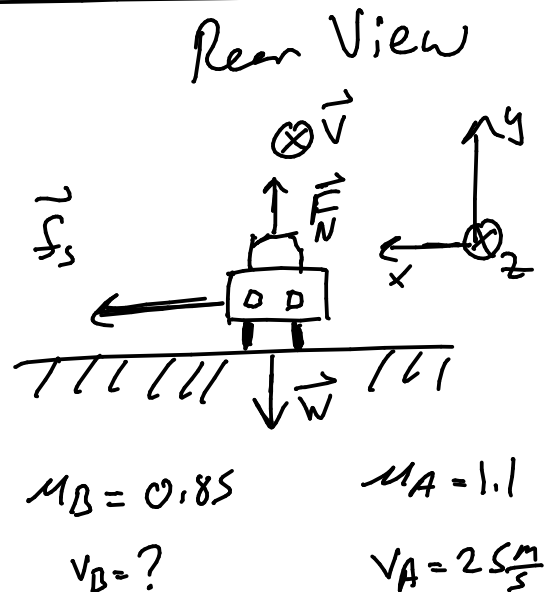 Rear View
V
y
F_N
f_s
x
z
W
μ_B = 0.85
μ_A = 1.1
v_B = ?
v_A = 25 m/s